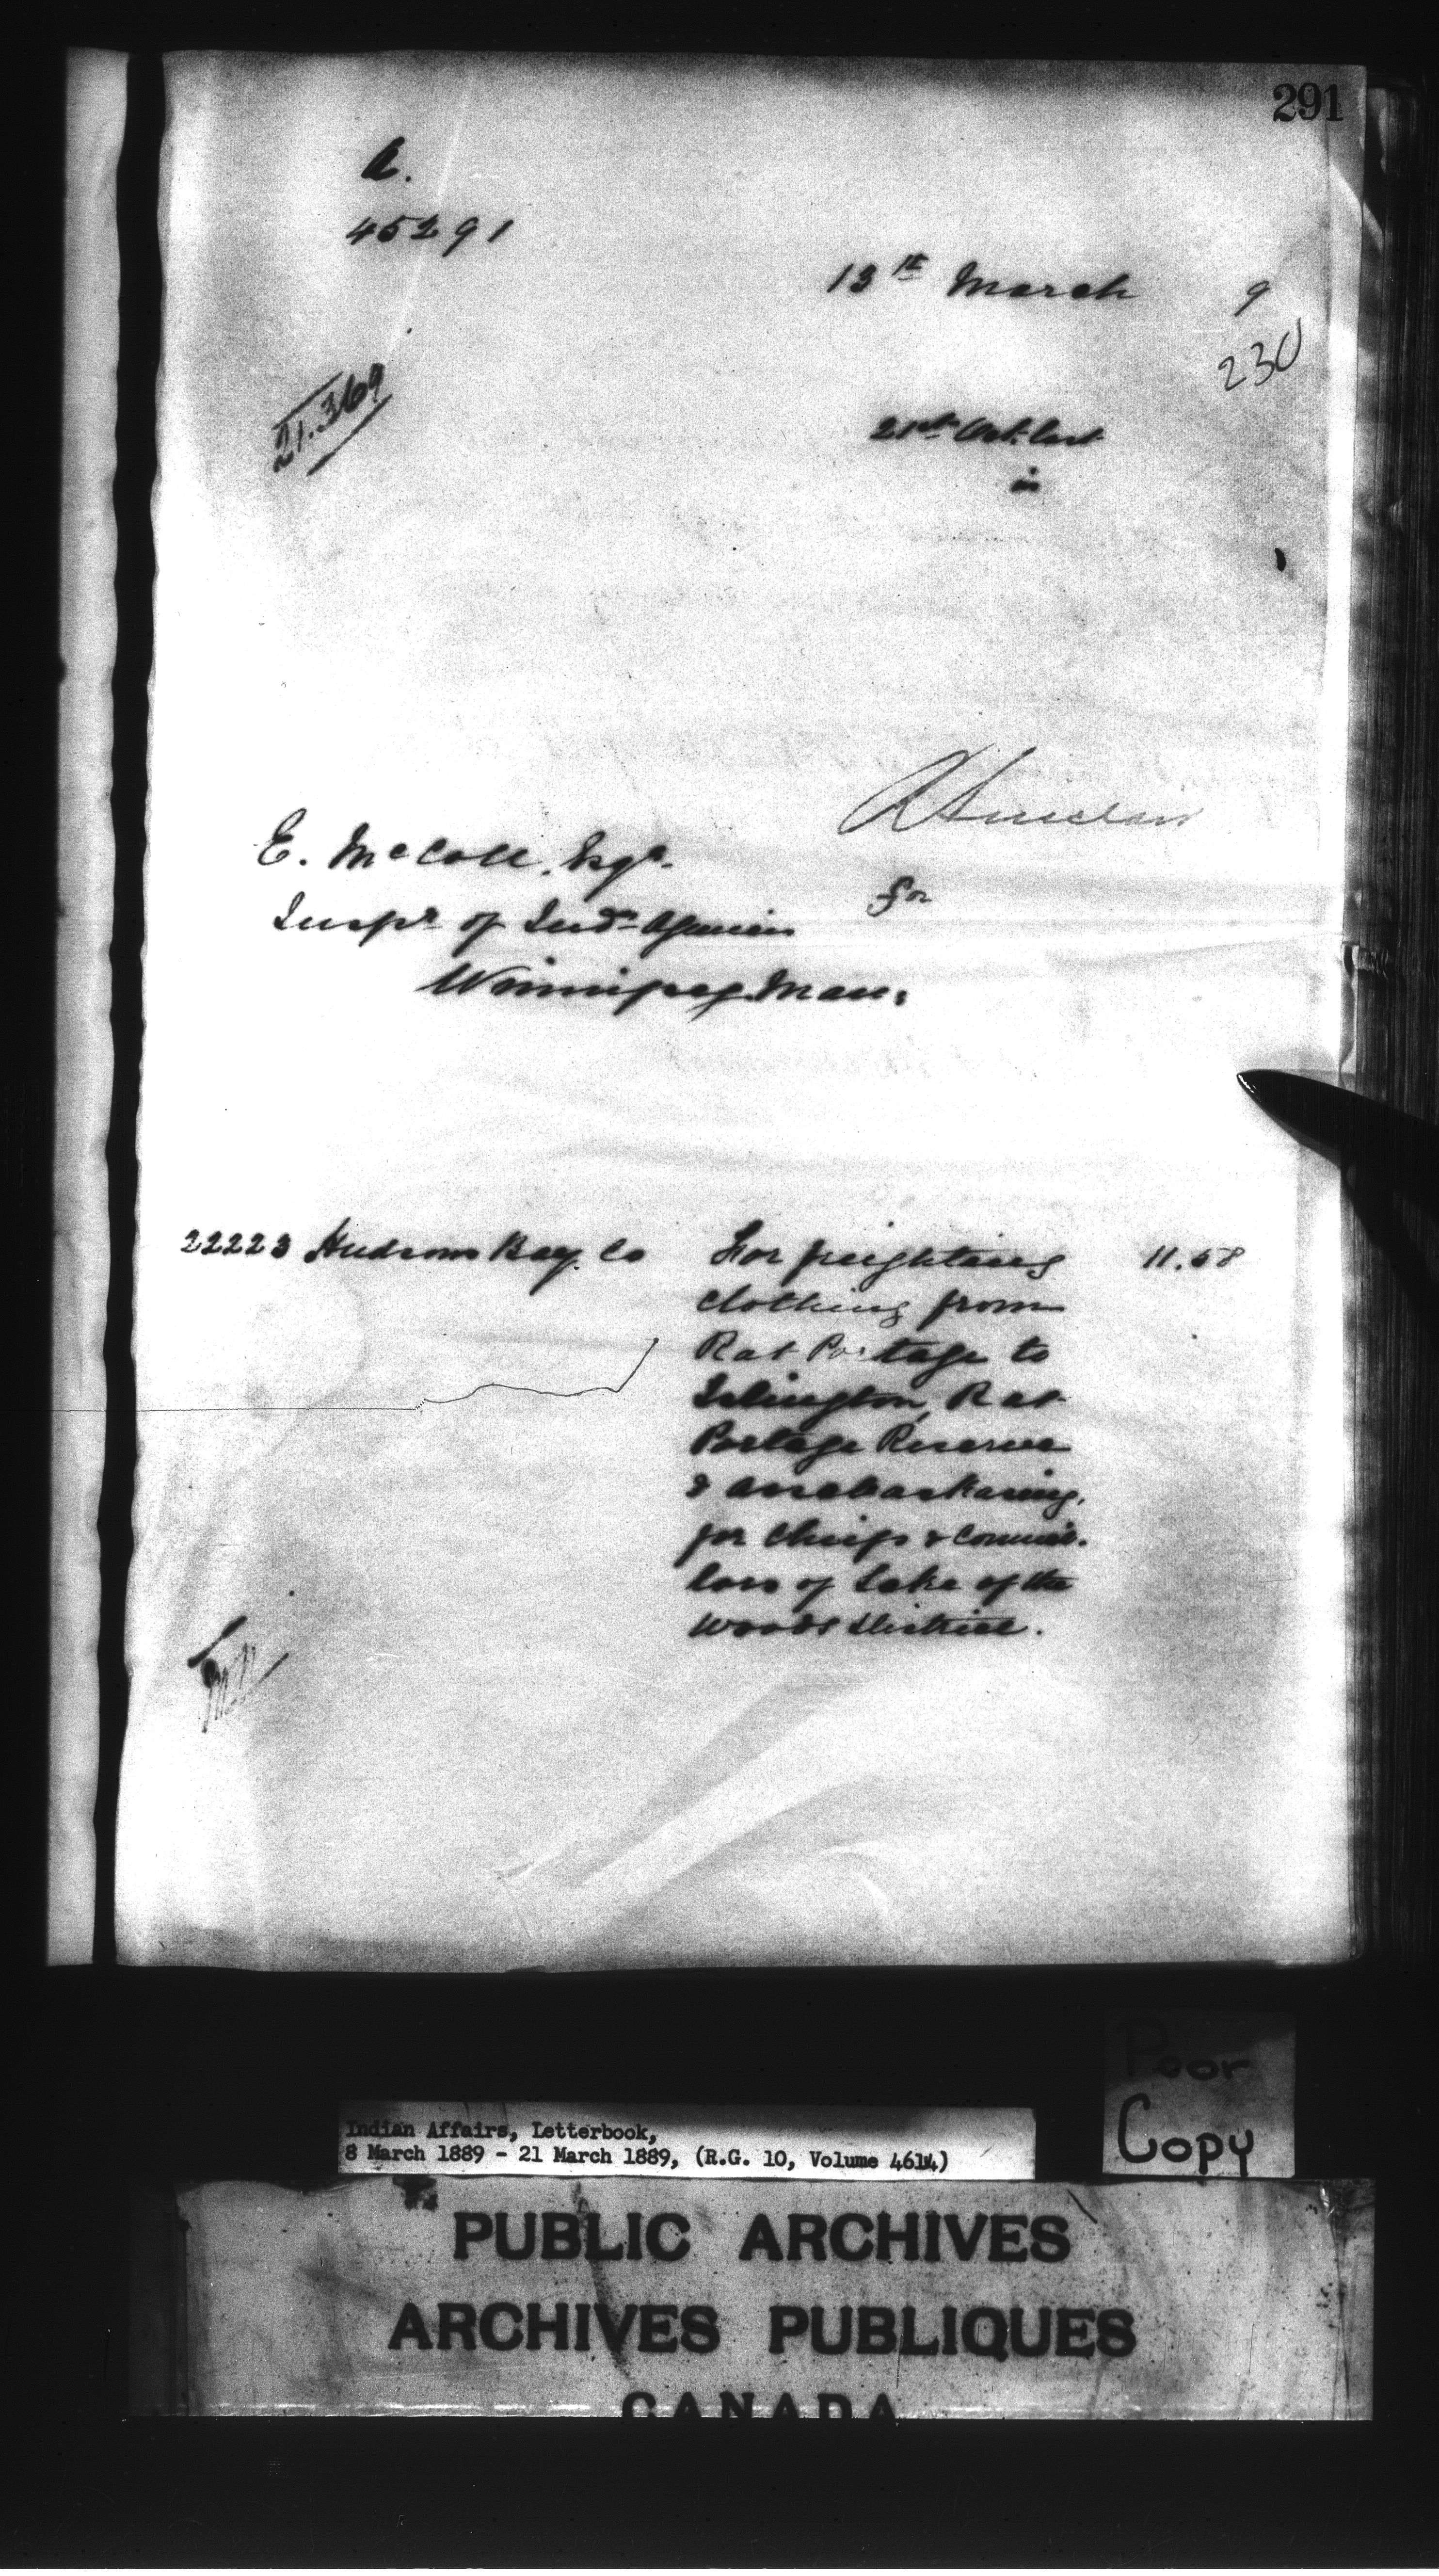 291
A.
45291
13th March 9
230
21.369
21st Oct. last
in
R Sinclair
E. McColl, Esqr.
for
Inspr of Indn Agencies
Winnipeg Man:
22223 Hudsons Bay Co For freighting 11.58
clothing from
Rat Portage to
Islington, Rat
Portage Reserve
& Assabaskasing,
for Chiefs & Council-
lors of Lake of the
Woods District.
Poor
Copy
Indian Affairs, Letterbook,
8 March 1889 - 21 March 1889, (R.G. 10, Volume 4614)
PUBLIC ARCHIVES
ARCHIVES PUBLIQUES
CANADA